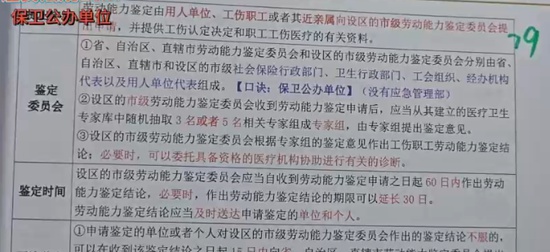 保卫公办单位
劳动能力鉴定由用人单位、工伤职工或者其近亲属向设区的市级劳动能力鉴定委员会提
出申请，并提供工伤认定决定和职工工伤医疗的有关资料。
79
鉴定
委员会
①省、自治区、直辖市劳动能力鉴定委员会和设区的市级劳动能力鉴定委员会分别由省、
自治区、直辖市和设区的市级社会保险行政部门、卫生行政部门、工会组织、经办机构
代表以及用人单位代表组成。【口诀：保卫公办单位】（没有应急管理部）
②设区的市级劳动能力鉴定委员会收到劳动能力鉴定申请后，应当从其建立的医疗卫生
专家库中随机抽取3名或者5名相关专家组成专家组，由专家组提出鉴定意见。
③设区的市级劳动能力鉴定委员会根据专家组的鉴定意见作出工伤职工劳动能力鉴定结
论；必要时，可以委托具备资格的医疗机构协助进行有关的诊断。
鉴定时间
设区的市级劳动能力鉴定委员会应当自收到劳动能力鉴定申请之日起60日内作出劳动
能力鉴定结论，必要时，作出劳动能力鉴定结论的期限可以延长30日。
劳动能力鉴定结论应当及时送达申请鉴定的单位和个人。
①申请鉴定的单位或者个人对设区的市级劳动能力鉴定委员会作出的鉴定结论不服的，
可以在收到该鉴定结论之日起15日内向省